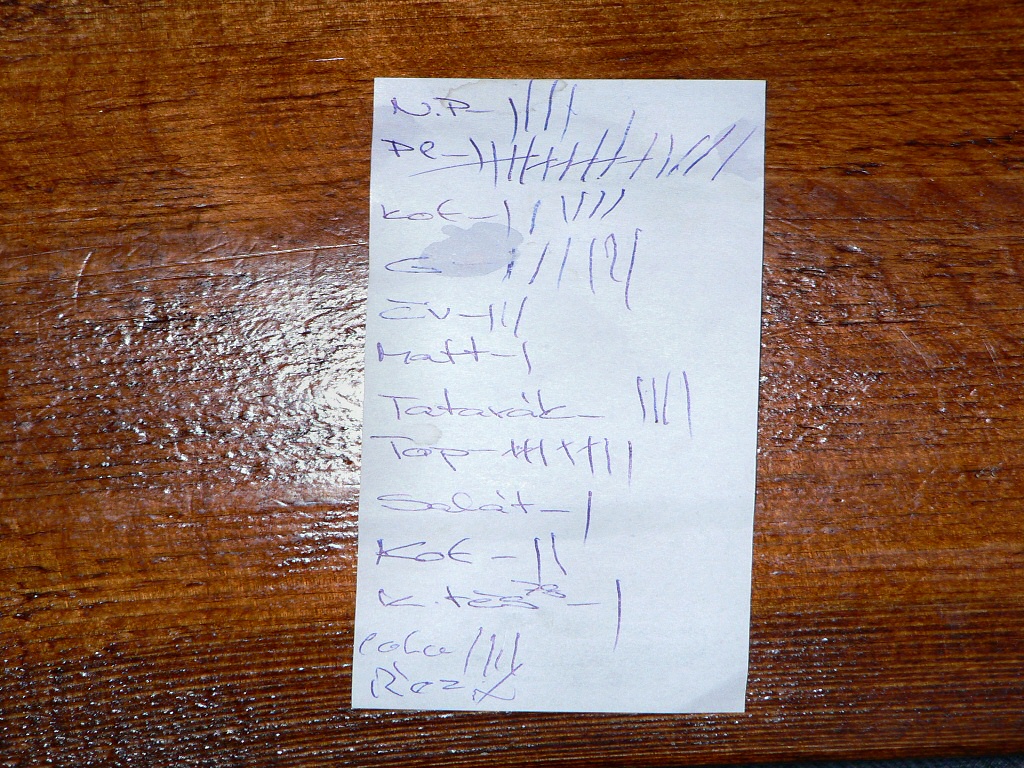 N.P-
Pe-
Kof-
G-
Čv-
Matt-
Tatarák-
Top-
Salát-
Kof-
K.těs 78-
cola
Řez